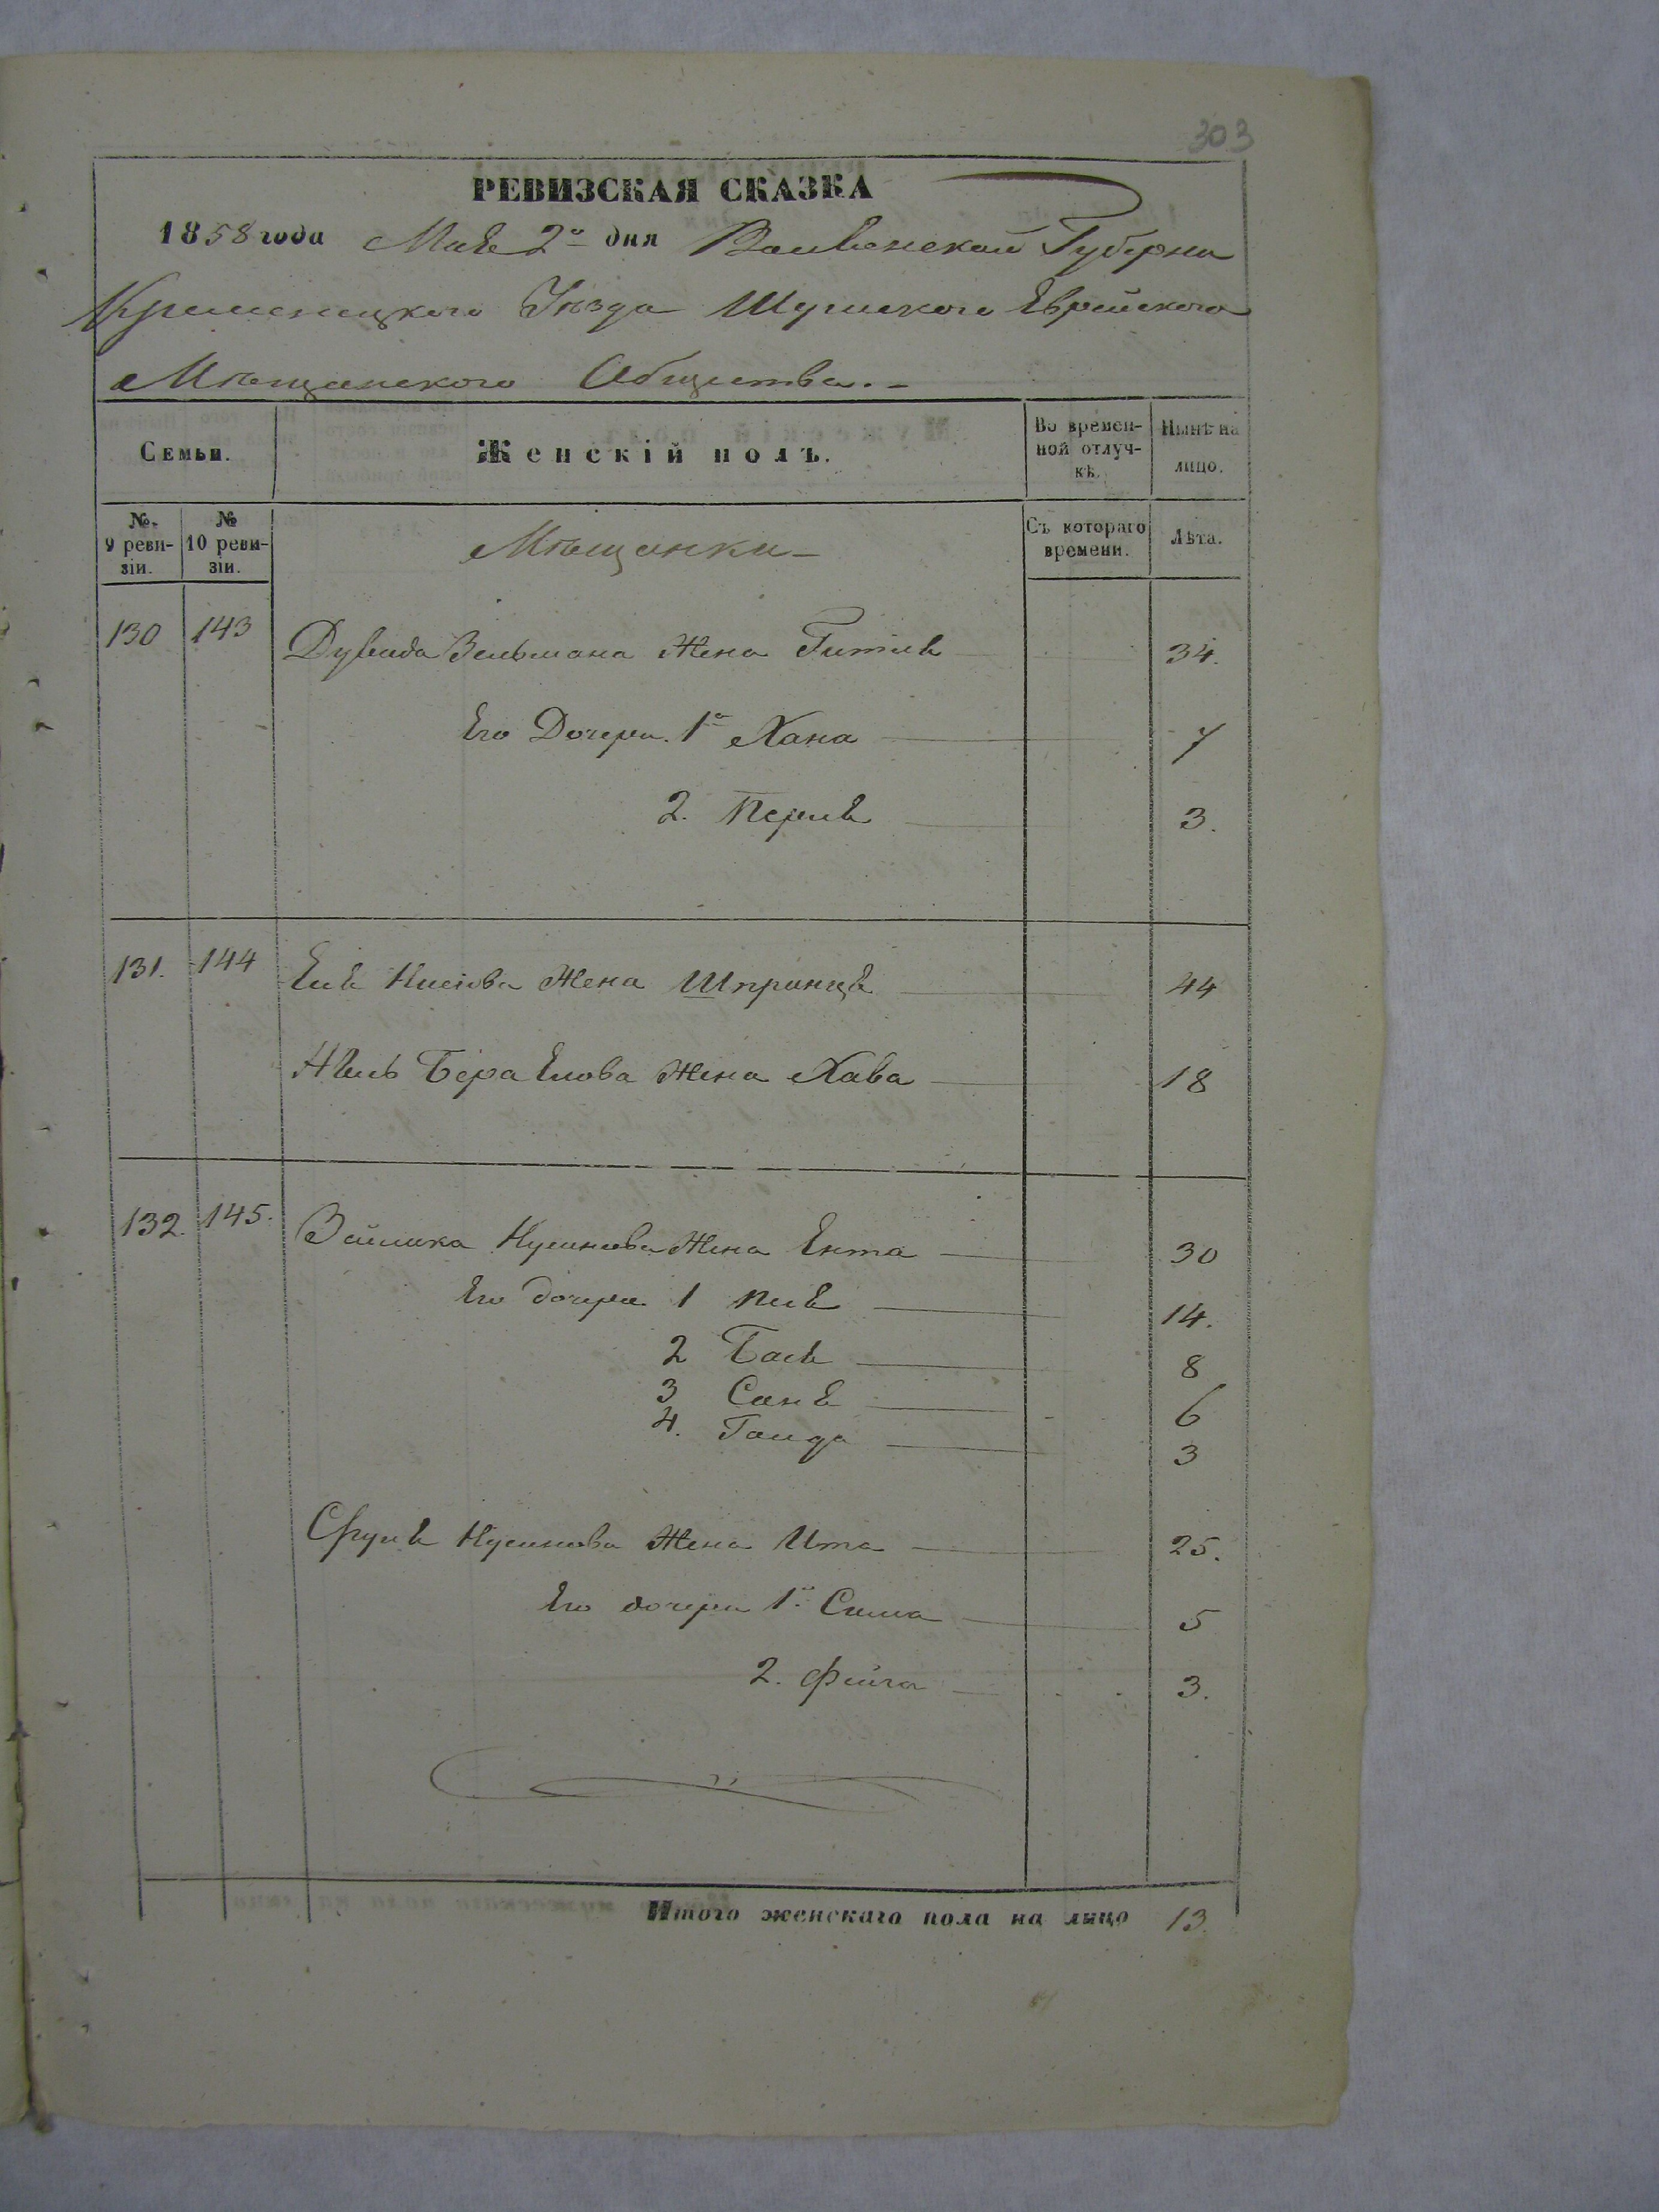 303
РЕВИЗСКАЯ СКАЗКА
1858 года Мая 2го дня Волынской Губерни
Кременецкого Уѣзда Шумского Еврейского
Мѣщанского Общества.-
Семьи. Женскій полъ. Во времен-ной отлуч-кѣ. Нынѣ на лицо.
№ 9 реви-зіи. № 10 реви-зіи. Мѣщанки- Съ котораго времени. Лѣта.
130 143 Дувида Зельмана Жена Гитля 34.
Его Дочери. 1я Хана 7
2. Перля 3.
131. 144 Еля Жена Шпринця 44
Бера Елова Жена Хава 18
132. 145. Нусинова Жена Ента 30
Его дочери 1 14.
2 Бася 8
3 Саня 6
4. Голда 3
Сруля Нусинова Жена Ита 25.
Его дочери 1я Сима 5
2. Фейга 3.
Итого женскаго пола на лицо 13.